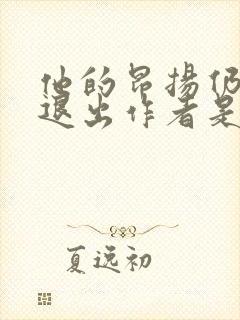 他的昂揚仍
退出作者是
夏远初